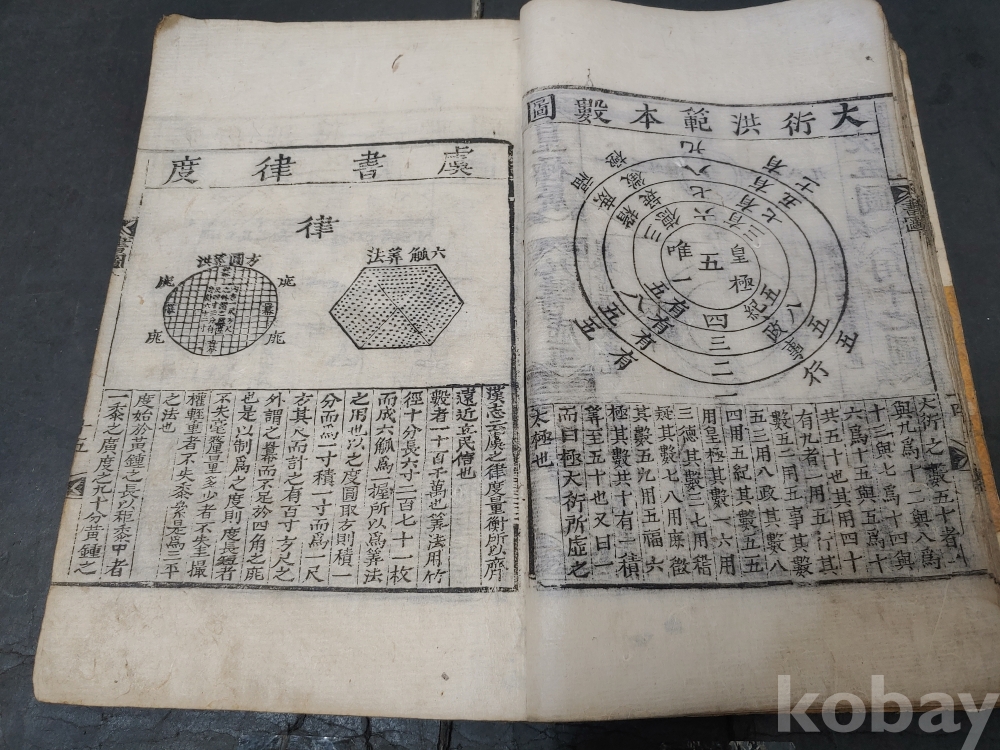 大衍洪範本數圖
九 八 七 六
皇極
五
唯
一 五 五 行
二 五 事
三 八 政
四 五 紀
大衍之數五十者一
與九爲十二與八爲
十三與七爲十四與
六爲十五與五爲十
共五十也其用四十
有九者一用五行其
數五二用五事其數
五三用八政其數八
四用五紀其數五五
用皇極其數一六用
三德其數三七用稽
疑其數七八用庶徵
其數五九用五福六
極其數共十有一積
筭至五十也又曰一
而曰極大衍所虛之
太極也
虞書律度
律
六觚筭法
方圓筭法
庣
庣
庣
庣
漢志云虞之律度量衡所以齊
遠近立民信也
數者一十百千萬也筭法用竹
徑十分長六寸二百七十一枚
而成六觚爲一握所以爲筭法
之用也以之度圓取方則積一
分而爲一寸積一寸而爲一尺
方其尺而計之有百寸方尺之
外謂之冪而不足於四角之庣
也是以制爲之度則度長短者
不失毫釐量多少者不失圭撮
權輕重者不失黍絫是爲三平
之法也
度始於黃鍾之長以秬黍中者
一黍之廣度之九十分黃鍾之
十五
kobay